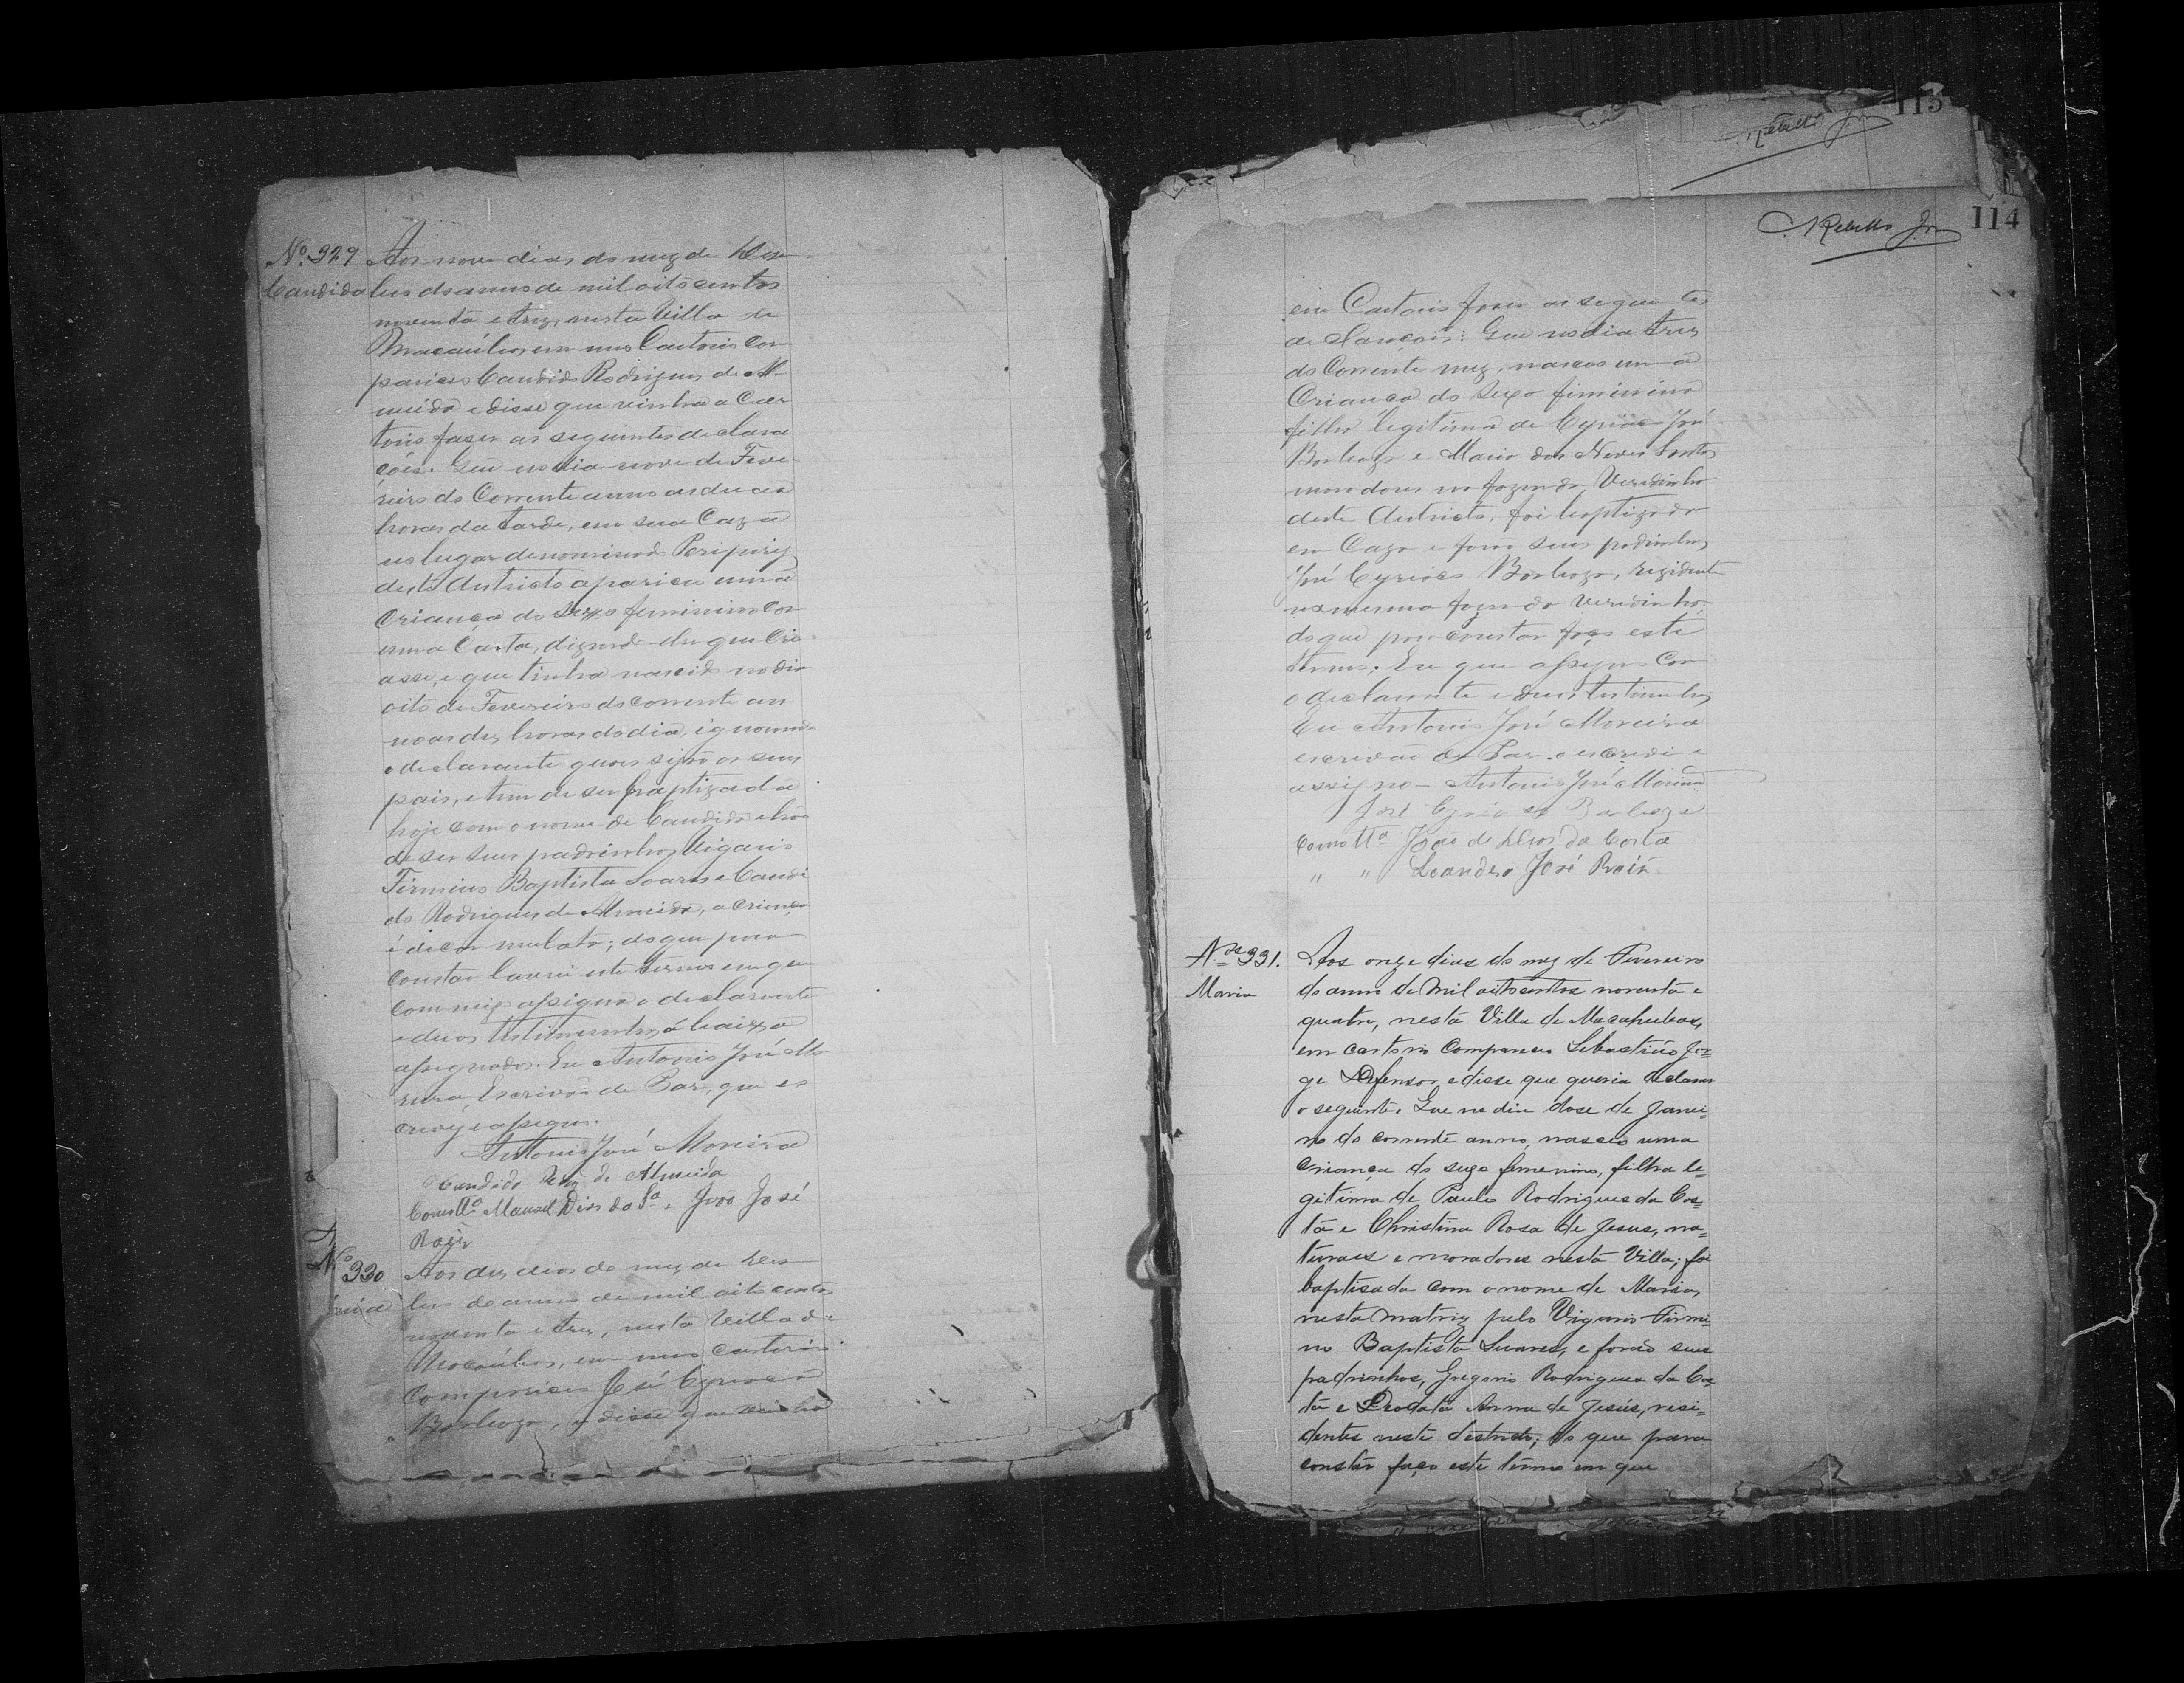 Nº 329 Aos nove dias do mez de Dezem
Candida bro do anno de mil oito centos
noventa e trez, nesta Villa de
Macaúbas em meo Cartorio com
pareceo Candido Rodrigues de Al
meida e disse que vinha a Car
torio faser as seguintes declara
ções. Que no dia nove de Feve
reiro do Corrente anno as duas
horas da tarde, em sua Caza
no lugar denominado Peripiry
deste districto apareceo uma
Criança do sexo feminino com
uma Carta, dizendo-lhe que Cri
asse, e que tinha nascido no dia
oito de Fevereiro do corrente an
no as dez horas do dia, ignorando
o declarante quaes sejão os seus
pais, e tem de ser baptizada
hoje com o nome de Candida e hão
de ser seus padrinhos Vigario
Firmino Baptista Soares e Candi
do Rodrigues de Almeida, a criança
é de cor mulata; do que para
constar lavrei este termo em que
commigo assigna o declarante
e duas testimunhas á baixo
assignados. Eu Antonio José Mo
reira, Escrivão de Paz, que es
crevy e assigno.
Antonio José Moreira
Candido Roiz de Almeida
Como Ttª Manoel Dias da Sª e João José
Nº 330 Aos dez dias do mez de Dezem
bro do anno de mil oito centos
noventa e trez, nesta Villa de
Macaúbas, em meo cartorio
compareceo José Cyriaco
Barboza, e disse que vinha
115
Rebello Jor
114
Rebello Jor
em Cartorio faser as seguintes
declarações: Que no dia trez
do Corrente mez, nasceo uma
Criança do sexo feminino
filha legitima de Cyriaco José
Barboza e Maria das Neves Santos
moradores na fazenda Veredinha
deste districto, foi baptizada
em Caza e forão seus padrinhos
José Cyriaco Barboza, rezidente
na mesma fazenda Veredinha;
do que para constar faço este
termo; Em que assigno Com
o declarante e duas testemunhas
Eu Antonio José Moreira
escrivão de Paz o escrevi e
assigno - Antonio José Moreira
José Cyriaco Barboza
como ttª João de Deos da Costa
" " Leandro José
Nos 331. Aos onze dias do mez de Fevereiro
Maria do anno de mil oitocentos noventa e
quatro, nesta Villa de Macahubas,
em cartorio Compareceu Sebastião Jor=
ge Defensor, e disse que queria declarar
o seguinte. Que no dia dose de Janei=
ro do corrente anno, nasceo uma
criança do sexo femenino, filha le=
gitima de Paulo Rodrigues da Cos=
ta e Christina Rosa de Jesus, na=
turaes e moradores nesta Villa; foi
baptisada com o nome de Maria,
nesta matriz pelo Vigario Firmi=
no Baptista Suares, e forão seus
padrinhos, Gregorio Rodrigues da Cos=
ta e Deodata Anna de Jesús, resi=
dentes neste destricto; do que para
constar faço este termo em que